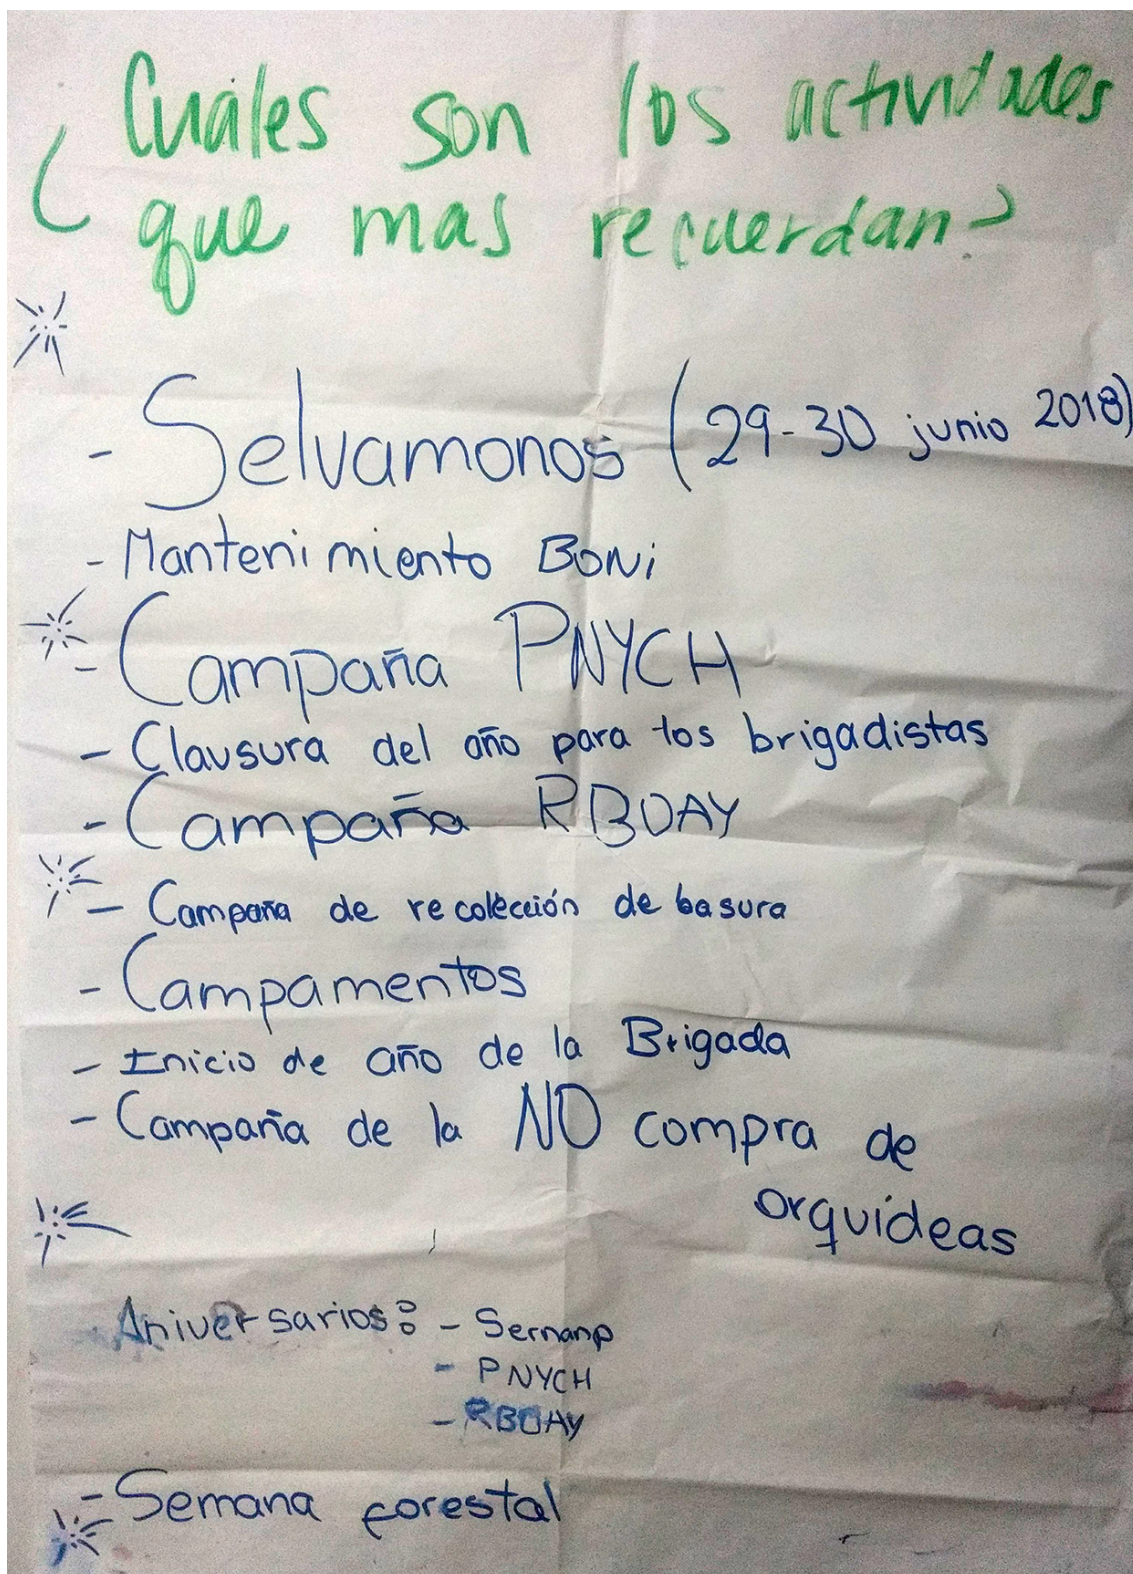 ¿Cuales son los actividades
que mas recuerdan?
- Selvamonos (29-30 junio 2018)
- Mantenimiento BONi
- Campaña PNYCH
- Clausura del año para los brigadistas
- Campaña RBOAY
- Campaña de recolección de basura
- Campamentos
- Inicio de año de la Brigada
- Campaña de la NO compra de
orquideas
Aniversarios: - Sernanp
- PNYCH
- RBOAY
- Semana forestal